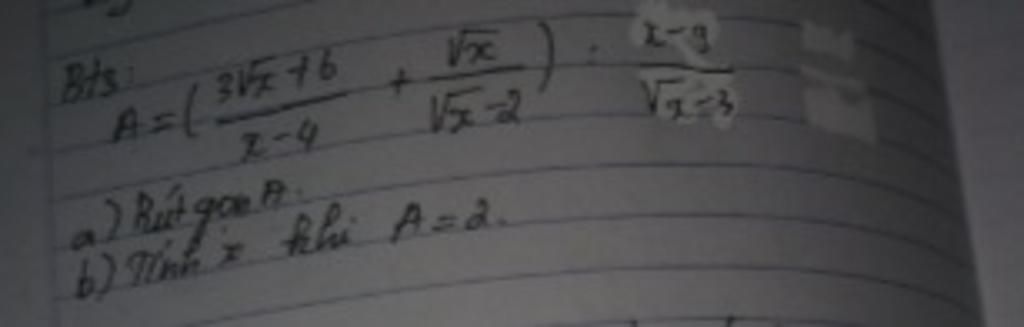 Bts:
A = ( (3√x+6)/(x-4) + √x/(√x-2) ) : (x-9)/(√x-3)
a) Rút gọn A.
b) Tính x khi A = 2.